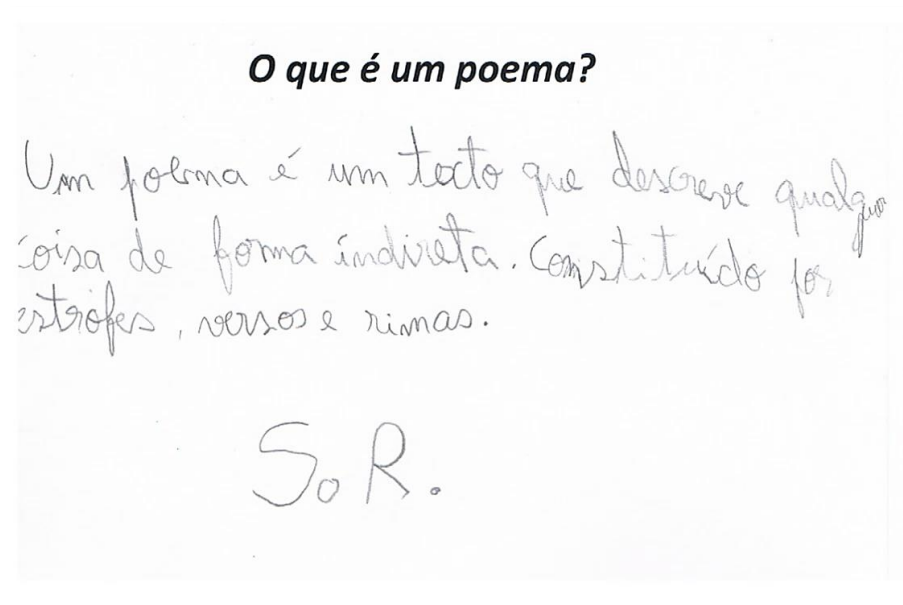 O que é um poema?
Um poema é um texto que descreve qualquer
coisa de forma indireta. Constituído por
estrofes, versos e rimas.
S. R.